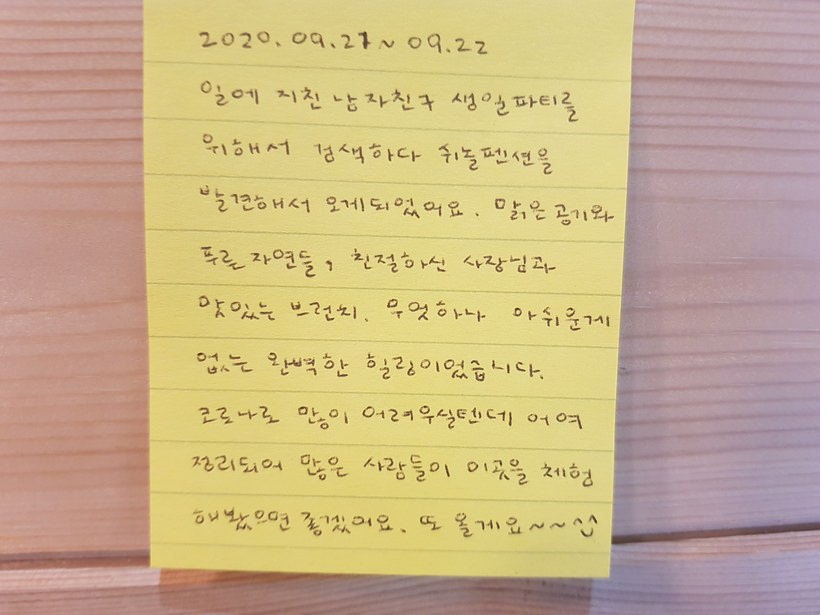 2020. 09.21 ~ 09.22
일에 지친 남자친구 생일파티를
위해서 검색하다 쉬놀펜션을
발견해서 오게되었어요. 맑은공기와
푸른 자연들, 친절하신 사장님과
맛있는 브런치. 무엇하나 아쉬운게
없는 완벽한 힐링이었습니다.
코로나로 많이 어려우실텐데 어여
정리되어 많은 사람들이 이곳을 체험
해봤으면 좋겠어요. 또 올게요~~^^